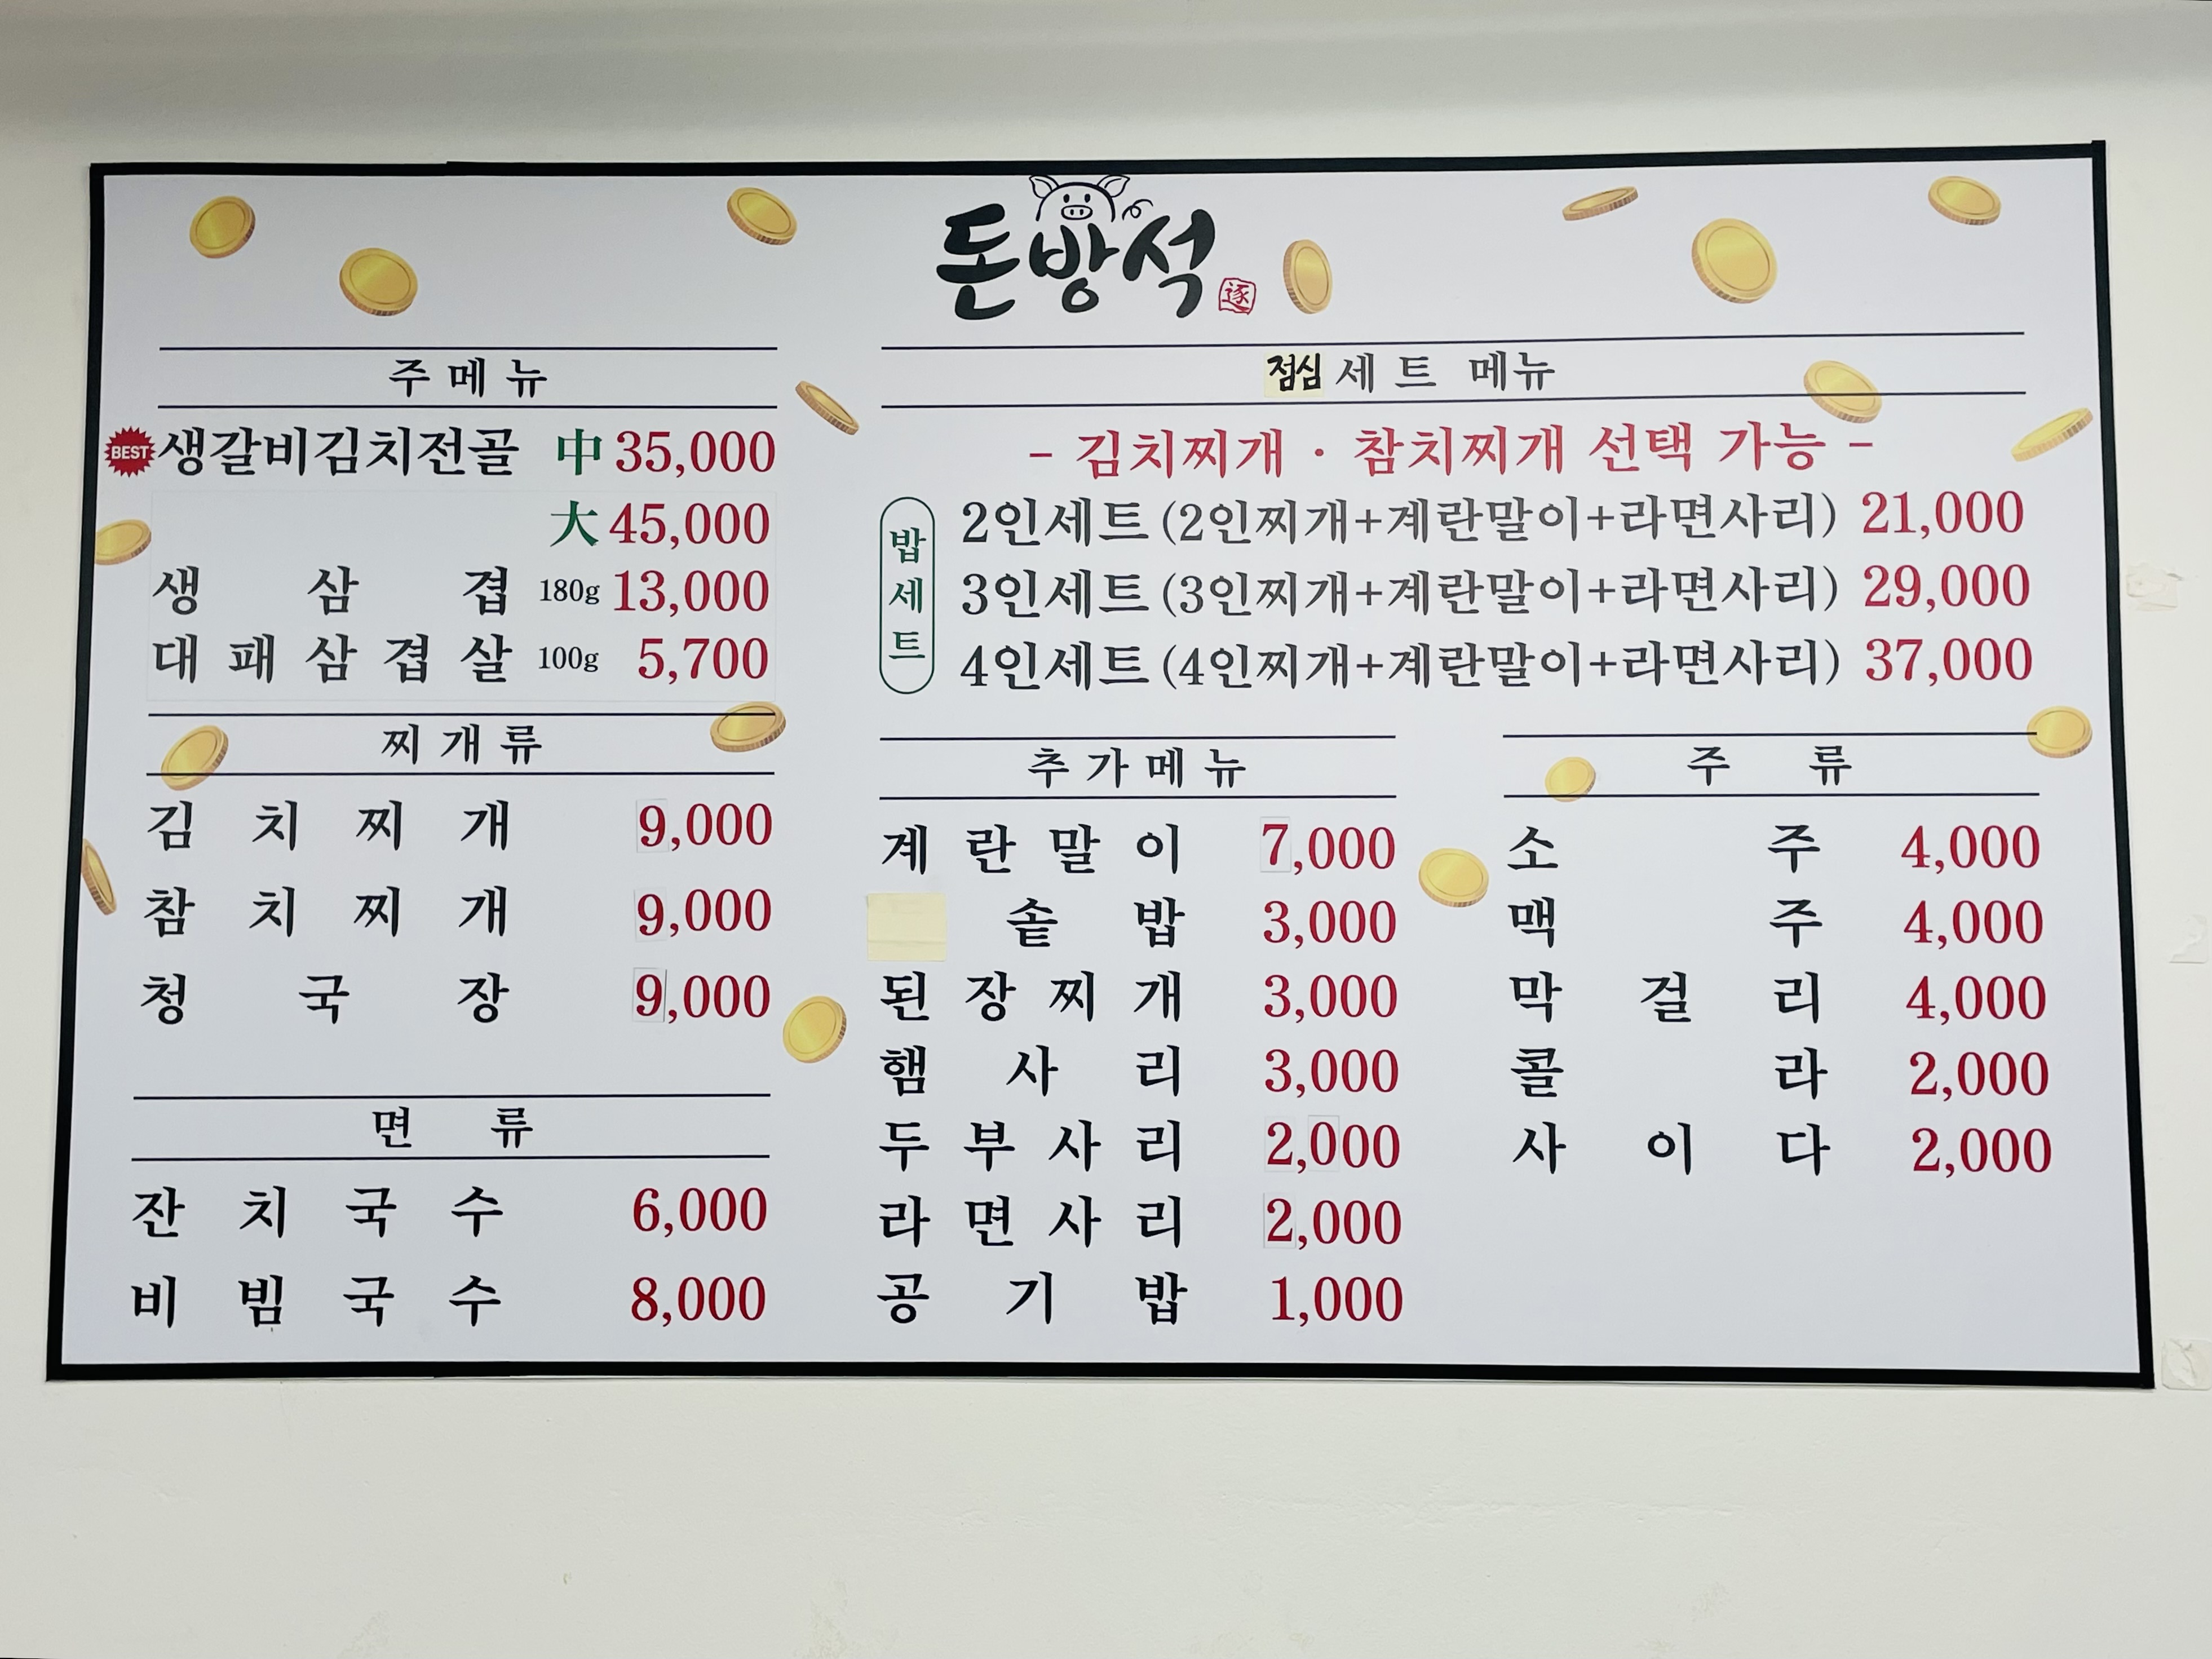 돈방석
逐
주메뉴
BEST 생갈비김치전골 中 35,000
大 45,000
생삼겹 180g 13,000
대패삼겹살 100g 5,700
찌개류
김치찌개 9,000
참치찌개 9,000
청국장 9,000
면류
잔치국수 6,000
비빔국수 8,000
점심세트 메뉴
- 김치찌개 · 참치찌개 선택 가능 -
밥세트
2인세트(2인찌개+계란말이+라면사리) 21,000
3인세트(3인찌개+계란말이+라면사리) 29,000
4인세트(4인찌개+계란말이+라면사리) 37,000
추가메뉴
계란말이 7,000
솥밥 3,000
된장찌개 3,000
햄사리 3,000
두부사리 2,000
라면사리 2,000
공기밥 1,000
주류
소주 4,000
맥주 4,000
막걸리 4,000
콜라 2,000
사이다 2,000